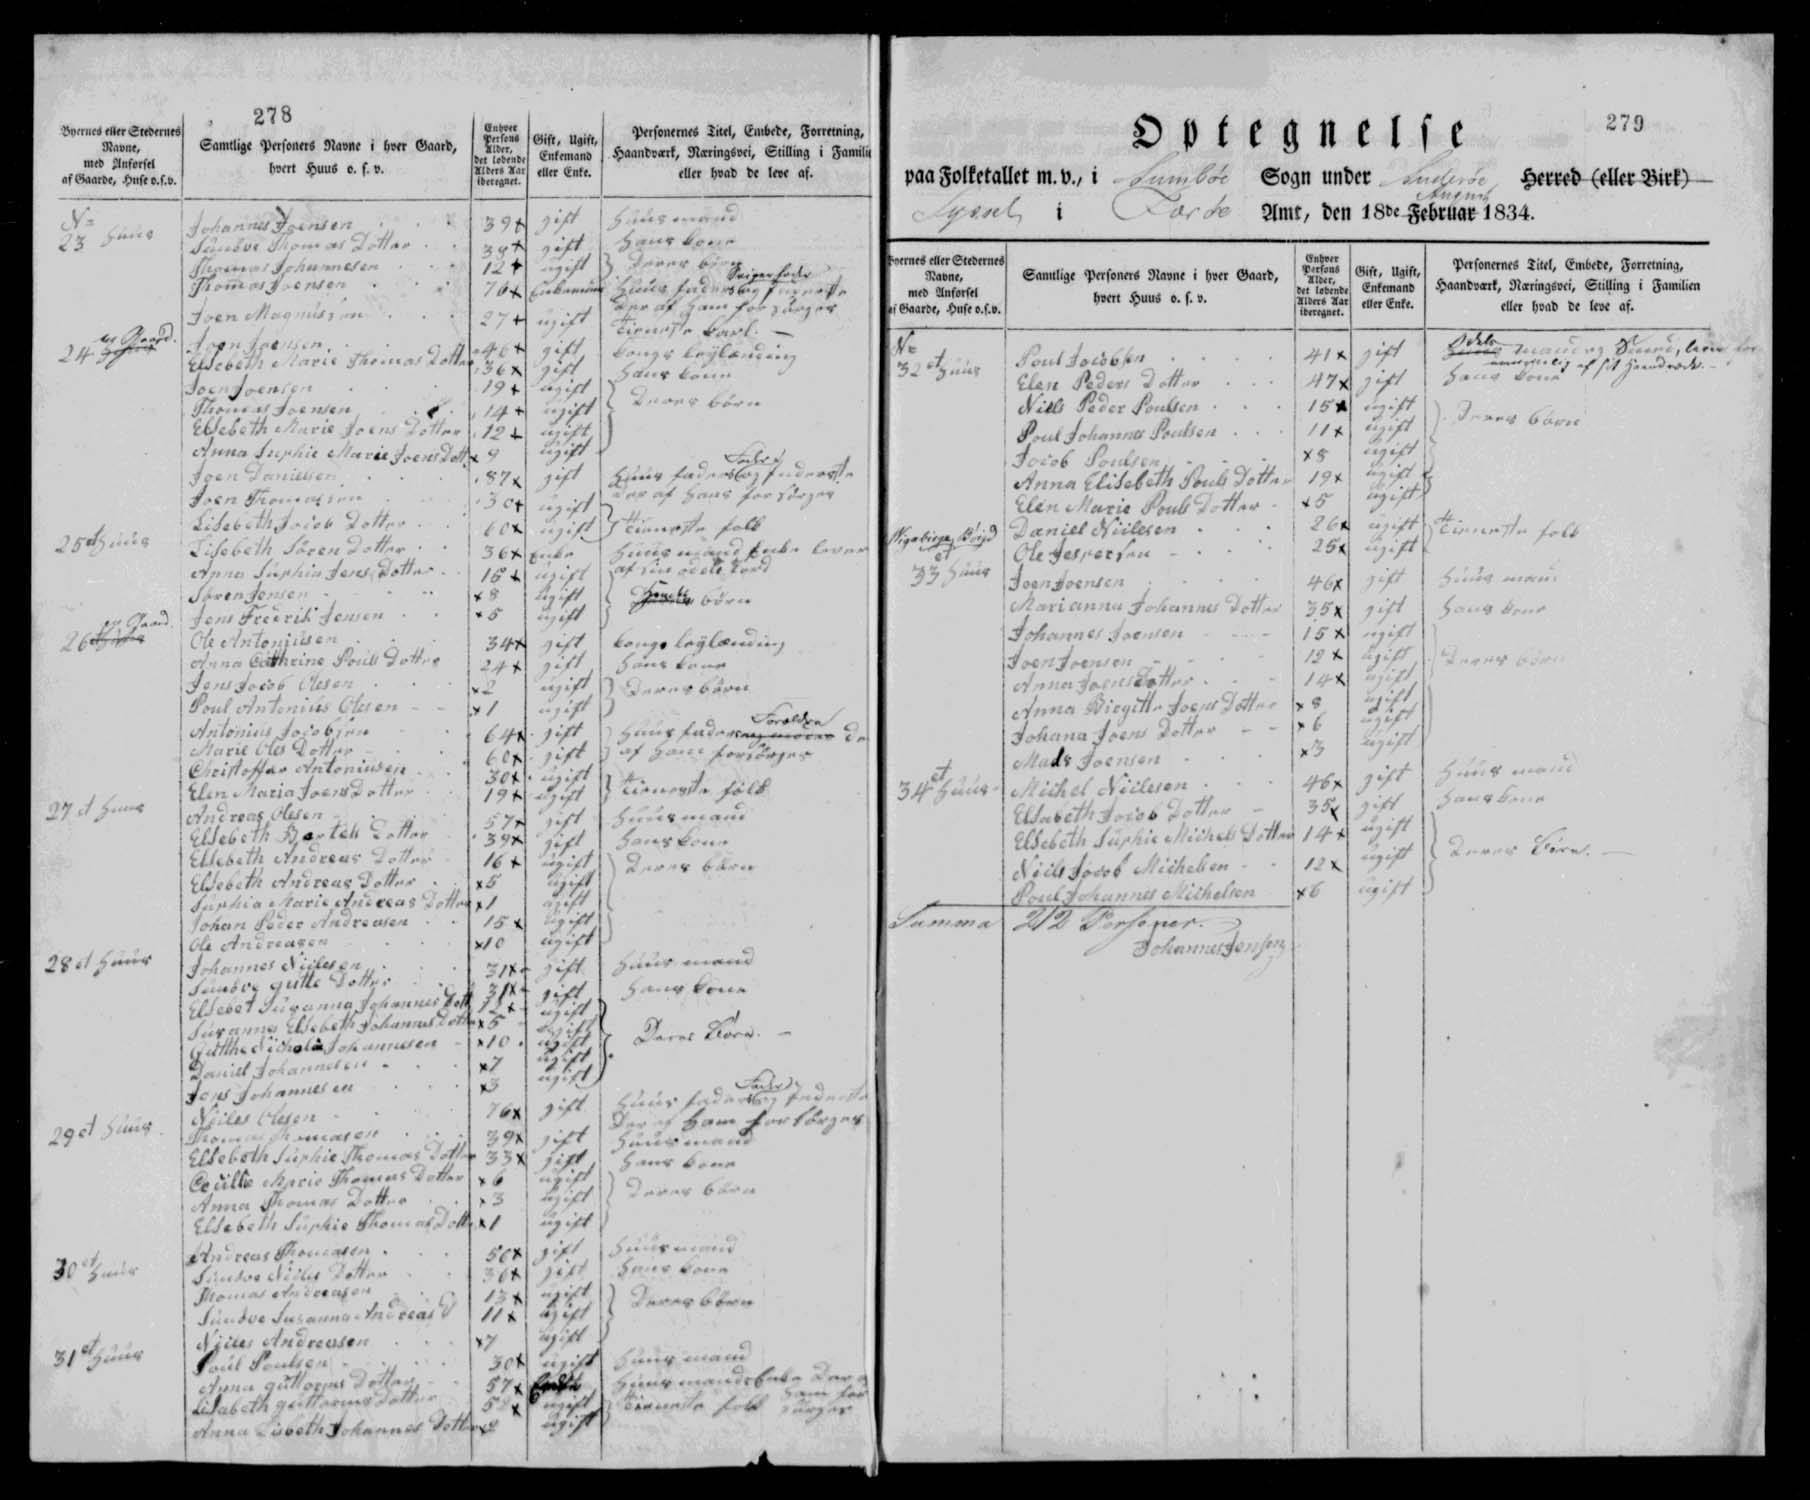 278
Byernes eller Stedernes Navne, med Anførsel af Gaarde, Huse o.s.v.
Samtlige Personers Navne i hver Gaard, hvert Huus o. s. v.
Enhver Persons Alder, det løbende Alders Aar iberegnet.
Gift, Ugift, Enkemand eller Enke.
Personernes Titel, Embede, Forretning, Haandværk, Næringsvei, Stilling i Famili eller hvad de leve af.
No 23 Huus Johannes Joensen 39 x gift Huusmand
Sunøve Thomas Dotter 38 x gift Hans kone
Thomas Johannesen 12 x ugift Deres børn
Thomas Joensen 76 x Enkemand Huus faders Svigerfader og Inderste
der af ham forsørges
Joen Magnussen 27 x ugift Tieneste karl. —
24 en Gaard. Joen Joensen 46 x gift kongs leylænding
Elsebeth Marie Thomas Dotter 36 x gift Hans kone
Joen Joensen 19 x ugift Deres børn
Thomas Joensen 14 x ugift
Elsebeth Marie Joens Dotter 12 x ugift
Anna Suphie Marie Joens Dott x 9 ugift
Joen Danielsen 87 x gift Huus faders Fader og Inderste
der af Hans forsørges
Joen Thomassen 30 x ugift Tieneste folk
Lisebeth Jacob Dotter 60 x ugift
25 et Huus Lisebeth Søren Dotter 36 x Enke Huus mand Enke lever
af sin odels Jord
Anna Suphia Jens Dotter 15 x ugift
Søren Jensen x 8 ugift børn
Jens Frederik Jensen x 5 ugift
26 en Gaard. Ole Antoniusen 34 x gift kongs leylænding
Anna Cathrine Pouls Dotter 24 x gift Hans kone
Jens Jacob Olesen x 2 ugift Deres børn
Poul Antonius Olesen x 1 ugift
Antonius Jacobsen 64 x gift Huus faders Forældre de
Marie Oles Dotter 60 x gift af ham forsørges
Christoffer Antoniusen 30 x ugift Tieneste folk
Elen Maria Joens Dotter 19 x ugift
27 et Huus Andreas Olesen 57 x gift Huusmand
Elsebeth Bertels Dotter 39 x gift Hans kone
Elsebeth Andreas Dotter 16 x ugift Deres børn
Elsebeth Andreas Dotter x 5 ugift
Suphia Marie Andreas Dotter x 1 ugift
Johan Peder Andreasen 15 x ugift
Ole Andreasen x 10 ugift
28 et Huus Johannes Nielesen 31 x gift Huus mand
Sunøve Gutte Dotter 31 x gift Hans kone
Elsebet Susanna Johannes Dott 12 x ugift
Susanna Elsebeth Johannes Dotter x 5 ugift Deres Børn. —
Gutthe Nicholai Johannesen x 10 ugift
Daniel Johannesen x 7 ugift
Jens Johannesen x 3 ugift
Nieles Olesen 76 x gift Huus faders Fader og Inderste
Der af Ham forsørges
29 et Huus Thomas Thomasen 39 x gift Huusmand
Elsebeth Suphie Thomas Dotter 33 x gift Hans kone
Cecillie Marie Thomas Dotter x 6 ugift Deres børn
Anna Thomas Dotter x 3 ugift
Elsebeth Suphie Thomas Dotte x 1 ugift
30 et Huus Andreas Thomasen 50 x gift Huusmand
Sunøve Nieles Dotter 36 x gift Hans kone
Thomas Andreasen 13 x ugift Deres børn
Sunøve Susanna Andreas D 11 x ugift
Nieles Andreasen x 7 ugift
31 et Huus Poul Poulsen 30 x ugift Huus mand
Anna Guttorms Dotter 57 x Enke Huus mands Enke Der a
Ham for
Lisabeth Guttorms Dotter 52 x ugift Tieneste folk sørges
Anna Lisbeth Johannes Dotter ugift
279
Optegnelse
paa Folketallet m. v., i Sumbøe Sogn under Suderøe Herred (eller Birk)
Syssel i Færøe Amt, den 18de Februar August 1834.
Byernes eller Stedernes Navne, med Anførsel af Gaarde, Huse o.s.v.
Samtlige Personers Navne i hver Gaard, hvert Huus o. s. v.
Enhver Persons Alder, det løbende Alders Aar iberegnet.
Gift, Ugift, Enkemand eller Enke.
Personernes Titel, Embede, Forretning, Haandværk, Næringsvei, Stilling i Familien eller hvad de leve af.
No 32 et Huus Poul Jacobsen 41 x gift Odels mand og lever
af sit Haandværk. —
Elen Peders Dotter 47 x gift Hans kone
Niels Peder Poulsen 15 x ugift Deres børn
Poul Johannes Poulsen 11 x ugift
Jacob Poulsen x 8 ugift
Anna Elisebeth Pouls Dotter 19 x ugift
Elen Marie Pouls Dotter x 5 ugift
Daniel Nielesen 26 x ugift Tieneste folk
Ole Jespersen 25 x ugift
33 et Huus Joen Joensen 46 x gift Huus man
Marianna Johannes Dotter 35 x gift Hans kone
Johannes Joensen 15 x ugift
Joen Joensen 12 x ugift Deres børn
Anna Joens Dotter 14 x ugift
Anna Birgitte Joens Dotter x 8 ugift
Johana Joens Dotter x 6 ugift
Mads Joensen x 3 ugift
34 et Huus Michel Nielesen 46 x gift Huus mand
Elsabeth Jacob Dotter 35 x gift Hans kone
Elsebeth Suphie Michels Dotter 14 x ugift
Niels Jacob Michelsen 12 x ugift Deres Børn. —
Poul Johannes Michelsen x 6 ugift
Summa 212 Personer.
Johannes Jensen